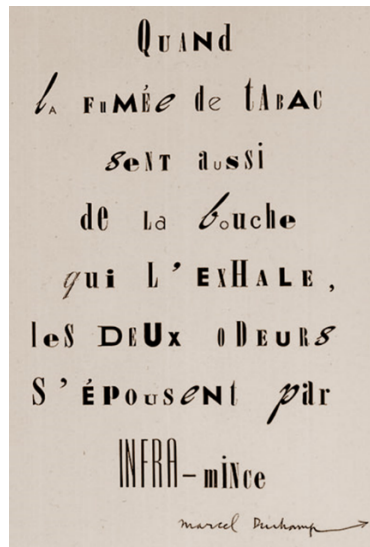 QUANd
lA FUMÉe de tABAC
seNT aussi
de La bouche
qui L'EXHALE,
leS DEUX ODEURS
S'ÉPOUSENt pAr
INFRA-miNce
marcel Duchamp